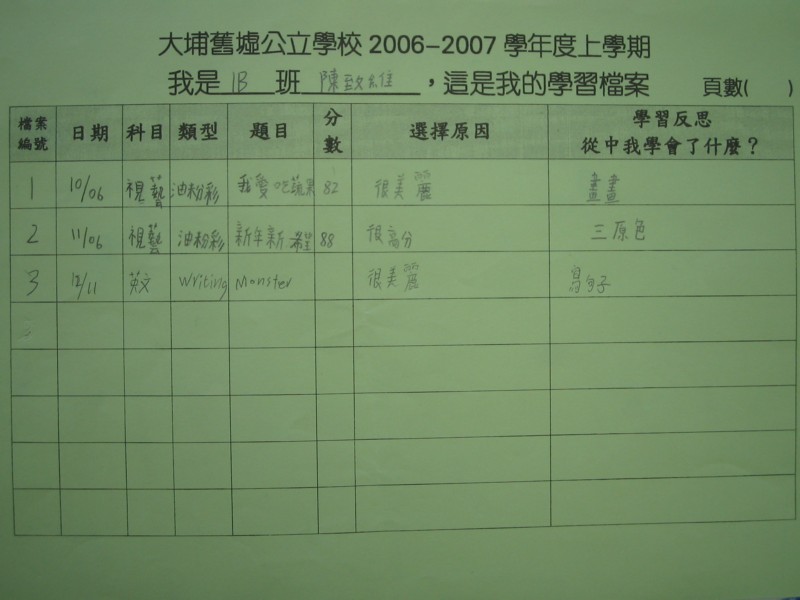 大埔舊墟公立學校 2006-2007 學年度上學期
我是 1B 班 陳致維 ，這是我的學習檔案 頁數( )
檔案編號 日期 科目 類型 題目 分數 選擇原因 學習反思 從中我學會了什麼？
1 10/06 視藝 油粉彩 我愛吃蔬果 82 很美麗 畫畫
2 11/06 視藝 油粉彩 新年新希望 88 很高分 三原色
3 12/11 英文 Writing Monster 很美麗 寫句子